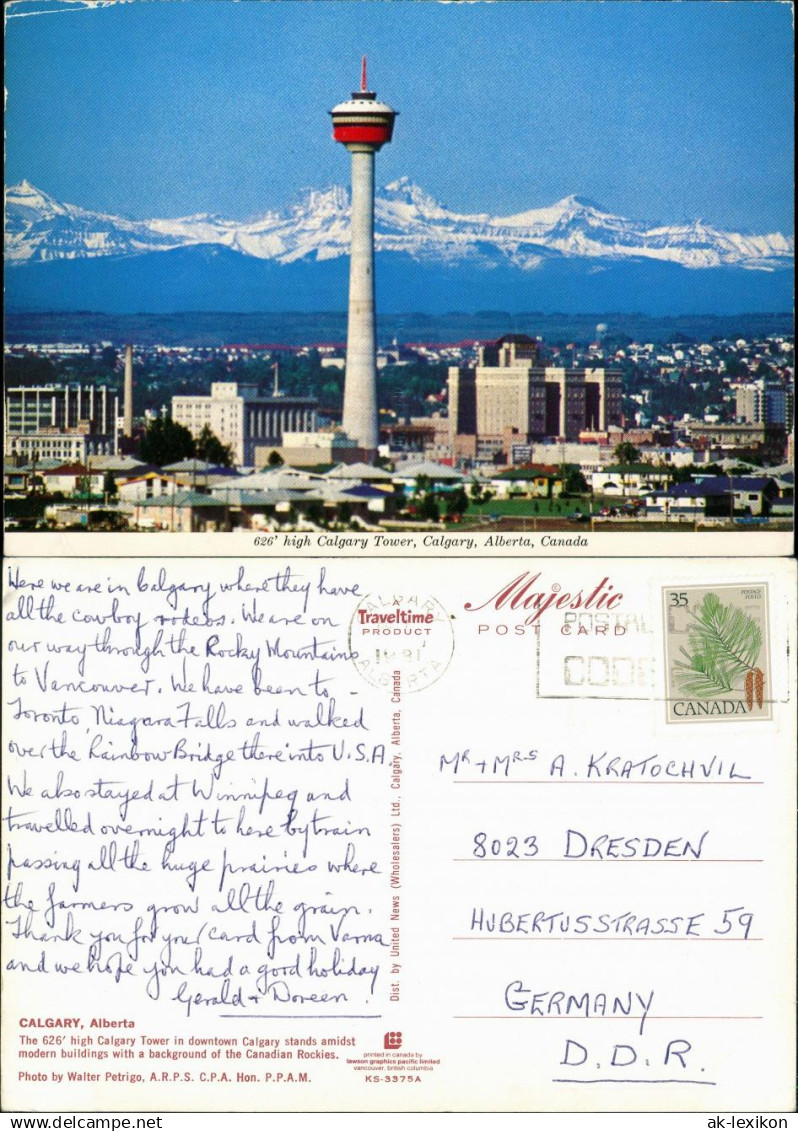 626' high Calgary Tower, Calgary, Alberta, Canada
Here we are in Calgary where they have
all the cowboy rodeos. We are on
our way through the Rocky Mountains
to Vancouver. We have been to -
Toronto, Niagara Falls and walked
over the Rainbow Bridge there into U.S.A.
We also stayed at Winnipeg and
travelled overnight to here by train
passing all the huge prairies where
the farmers grow all the grain.
Thank you for your card from Varna
and we hope you had a good holiday
Gerald + Doreen.
CALGARY, Alberta
The 626' high Calgary Tower in downtown Calgary stands amidst
modern buildings with a background of the Canadian Rockies.
Photo by Walter Petrigo, A.R.P.S. C.P.A. Hon. P.P.A.M.
Traveltime
PRODUCT
CALGARY
ALBERTA
Dist. by United News (Wholesalers) Ltd., Calgary, Alberta, Canada
printed in canada by
lawson graphics pacific limited
vancouver, british columbia
KS-3375A
Majestic
POST CARD
POSTAL
CODE
35
POSTAGE
POSTES
CANADA
Mr + Mrs A. KRATOCHVIL
8023 DRESDEN
HUBERTUSSTRASSE 59
GERMANY
D.D.R.
ak-lexikon.com